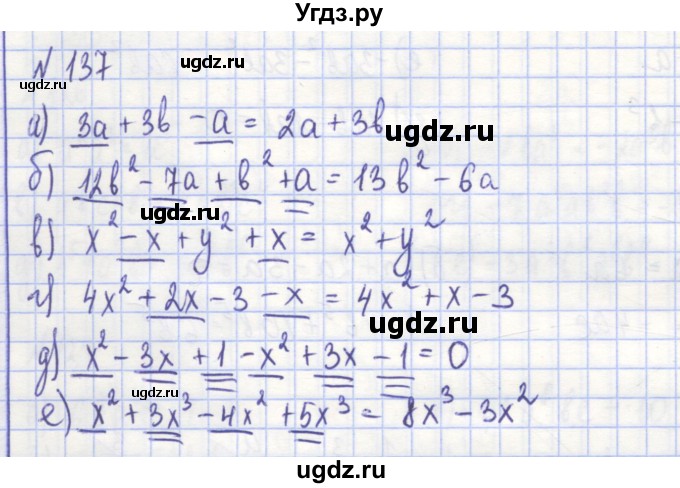 Угдз.ру
№ 137
ugdz.ru
ugdz.ru
а) 3a + 3b - a = 2a + 3b
ugdz.ru
б) 12b² - 7a + b² + a = 13b² - 6a
ugdz.ru
в) x² - x + y² + x = x² + y²
г) 4x² + 2x - 3 - x = 4x² + x - 3
ugdz.ru
ugdz.ru
д) x² - 3x + 1 - x² + 3x - 1 = 0
е) x² + 3x³ - 4x² + 5x³ = 8x³ - 3x²
ugdz.ru
ugdz.ru
ugdz.ru